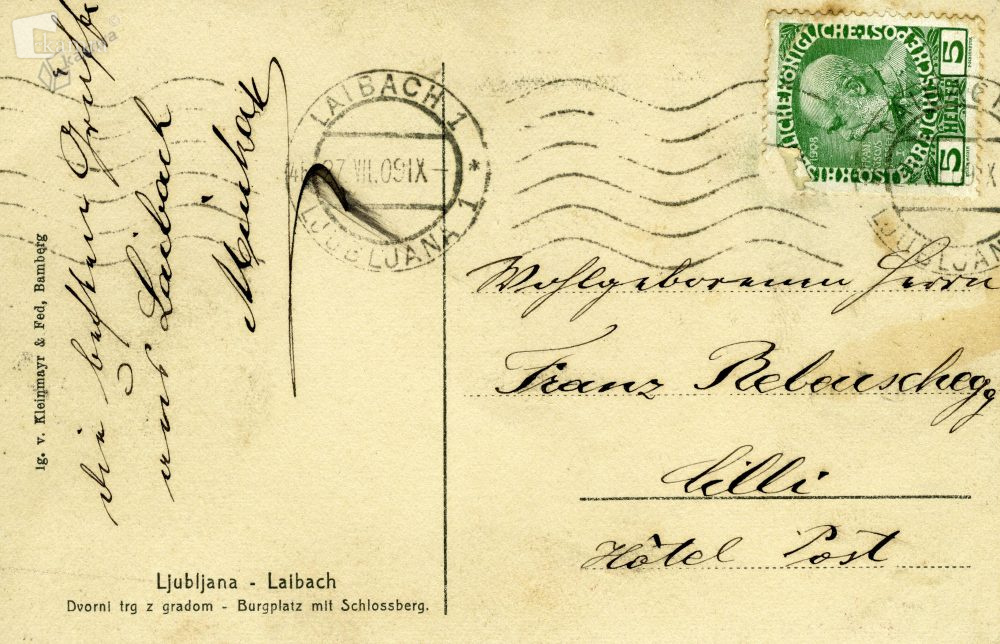 die besten Grüße
aus Laibach
LAIBACH 1
27 VII.09 IX
LJUBLJANA 1
5 HELLER 5
1908
LJUBLJANA
Wohlgeborenen Herrn
Franz Rebeuschegg
Cilli
Hôtel Post
Ig. v. Kleinmayr & Fed, Bamberg
Ljubljana - Laibach
Dvorni trg z gradom - Burgplatz mit Schlossberg.